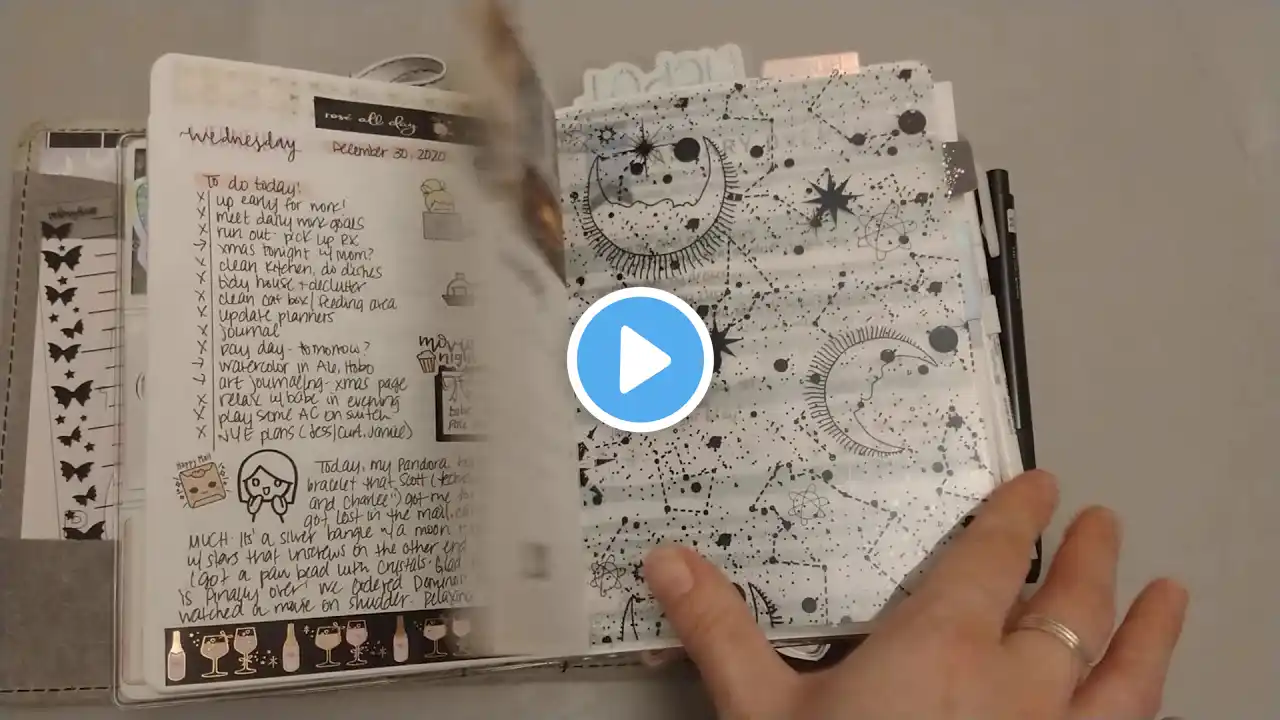 rosé all day
Wednesday
December 30, 2020
To do today:
x up early for more!
x meet daily work goals
x run out - pick up RX
→ xmas tonight w/ mom?
x clean kitchen, do dishes
x tidy house + declutter
x clean cat box / feeding area
x update planners
x journal
x pay day - tomorrow?
→ watercolor in
→ art journaling - xmas page
x relax w/ babe in evening
x play some AC on switch
x NYE plans (Jess/Curt, Jamie)
movie
night
Happy Mail
Today, my Pandora
bracelet that Scott
and Charlee") got me
got lost in the mail
MUCH. It's a silver bangle w/ a moon
w/ stars that unscrews on the other end
I got a paw bead with crystals. Glad
is finally over! We ordered
watched a movie on shudder.